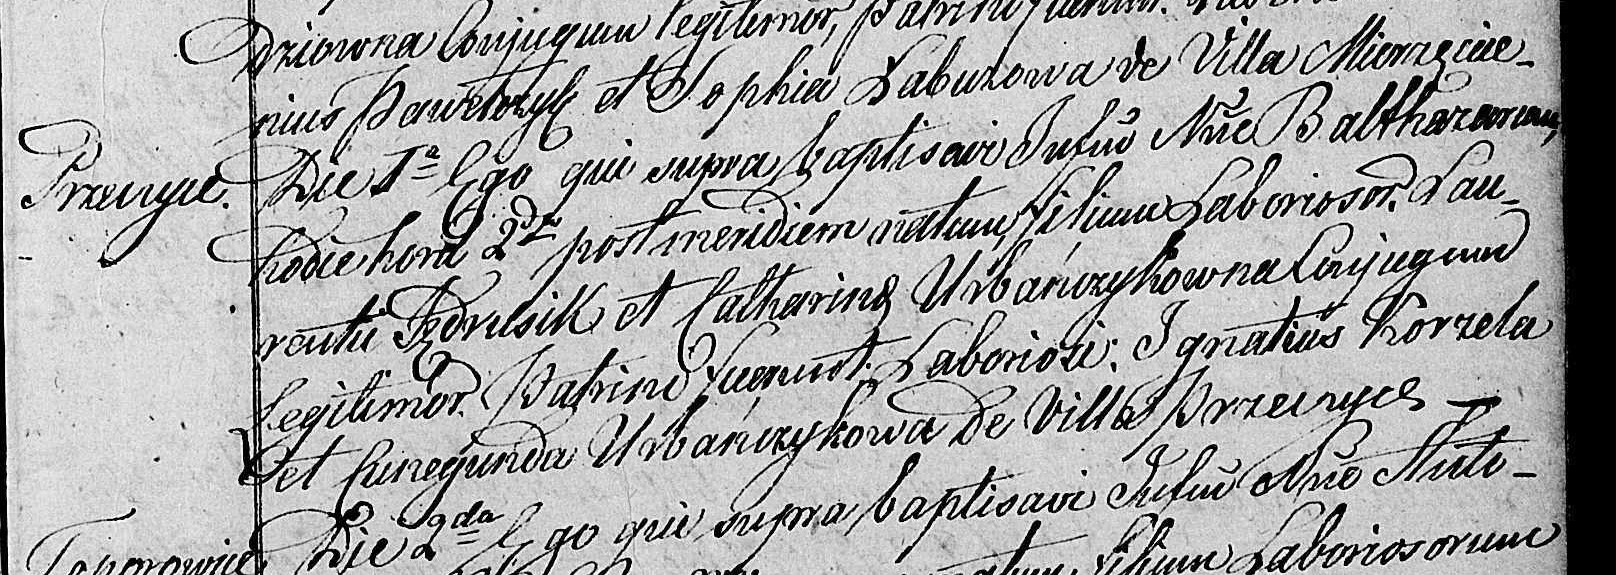 Dziowna Conjugum legitimor, Patrini fuerunt.
nius Pawełczyk et Sophia Łabuzowa de Villa Mierzęcice_
Przeczyce. Die 1ª Ego qui supra baptisavi Infue Nne Balthazarum,
hodie hora 2da post meridiem natum, filium Laboriosor. Lau_
rentii Jędrusik et Catharinę Urbańczykowna Conjugum
legitimor. Patrini fuerunt. Laboriosi: Ignatius Korzela
et Cunegunda Urbańczykowa de Villa Przeczyce —
Die 2da Ego qui supra baptisavi Infue Nne Anto_
Toporowice filium Laboriosorum